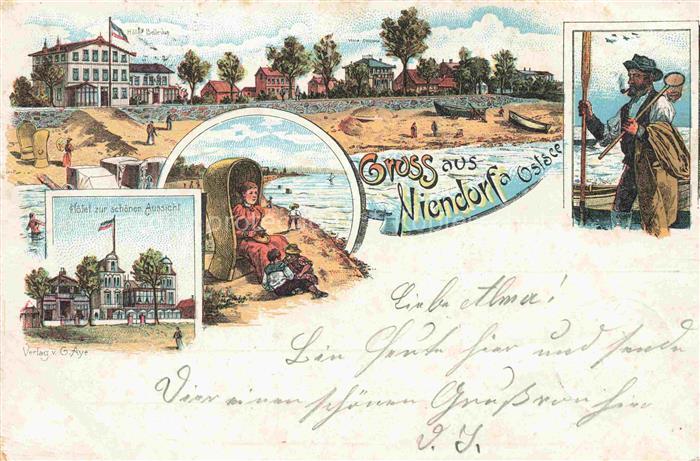 Hôtel Bellevue
Gruss aus
Niendorf a/ Ostsee
Hôtel zur schönen Aussicht
Verlag v. G. Aye
Liebe Alma!
Bin Heute hier und sende
Dier einen schönen Gruß von hier
D. J.